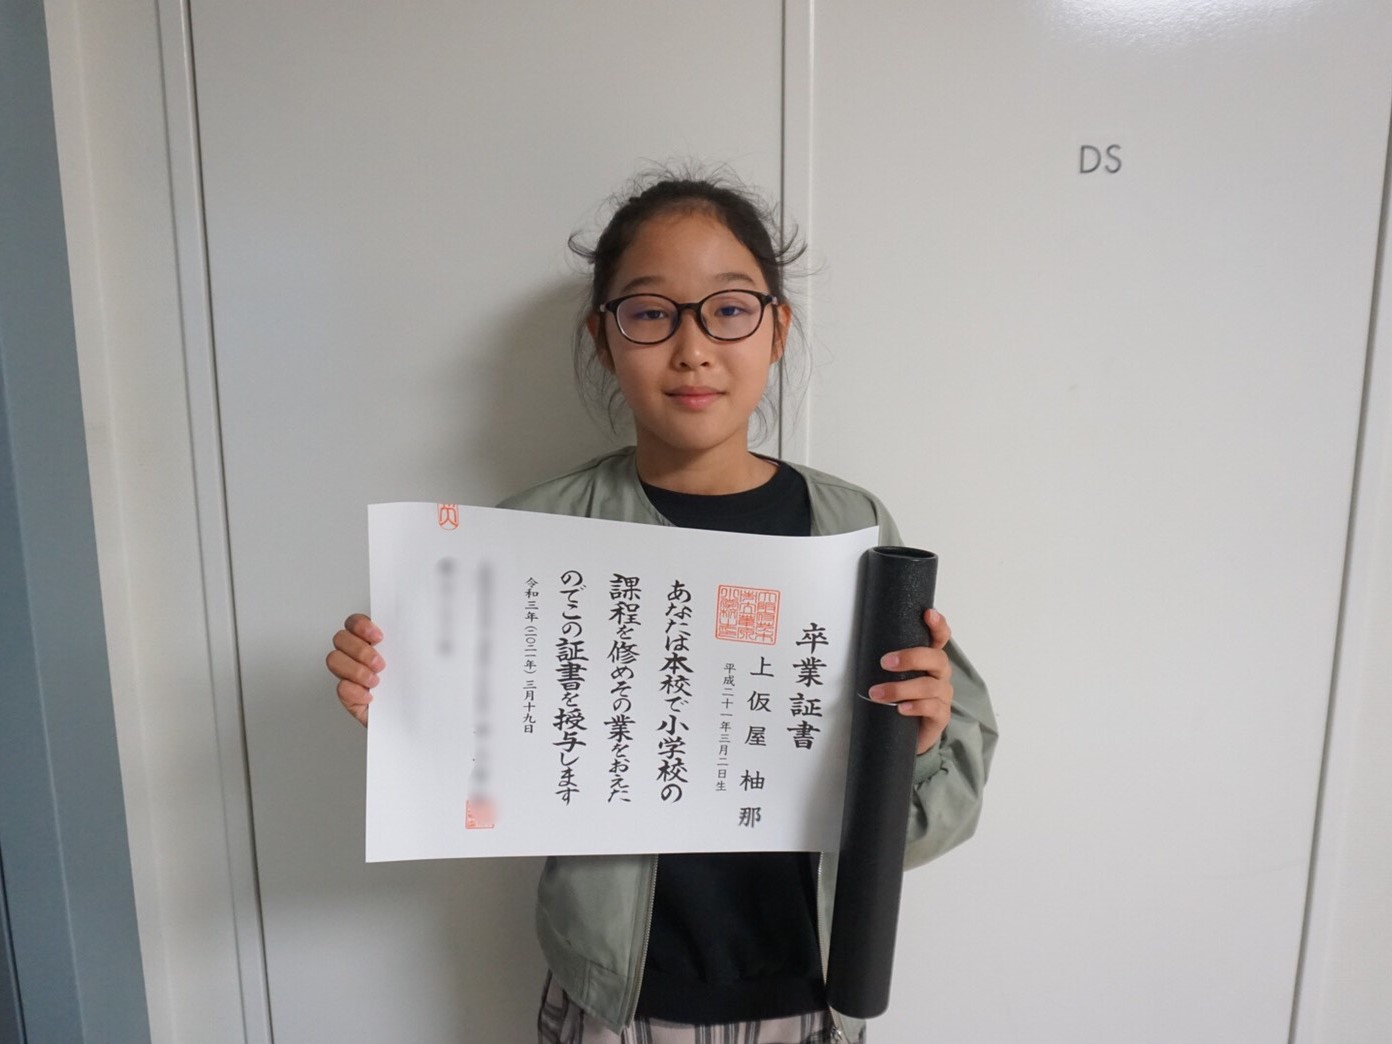 DS
卒業証書
上仮屋 柚那
平成二十一年三月二日生
あなたは本校で小学校の
課程を修めその業をおえた
のでこの証書を授与します
令和三年(二〇二一年)三月十九日